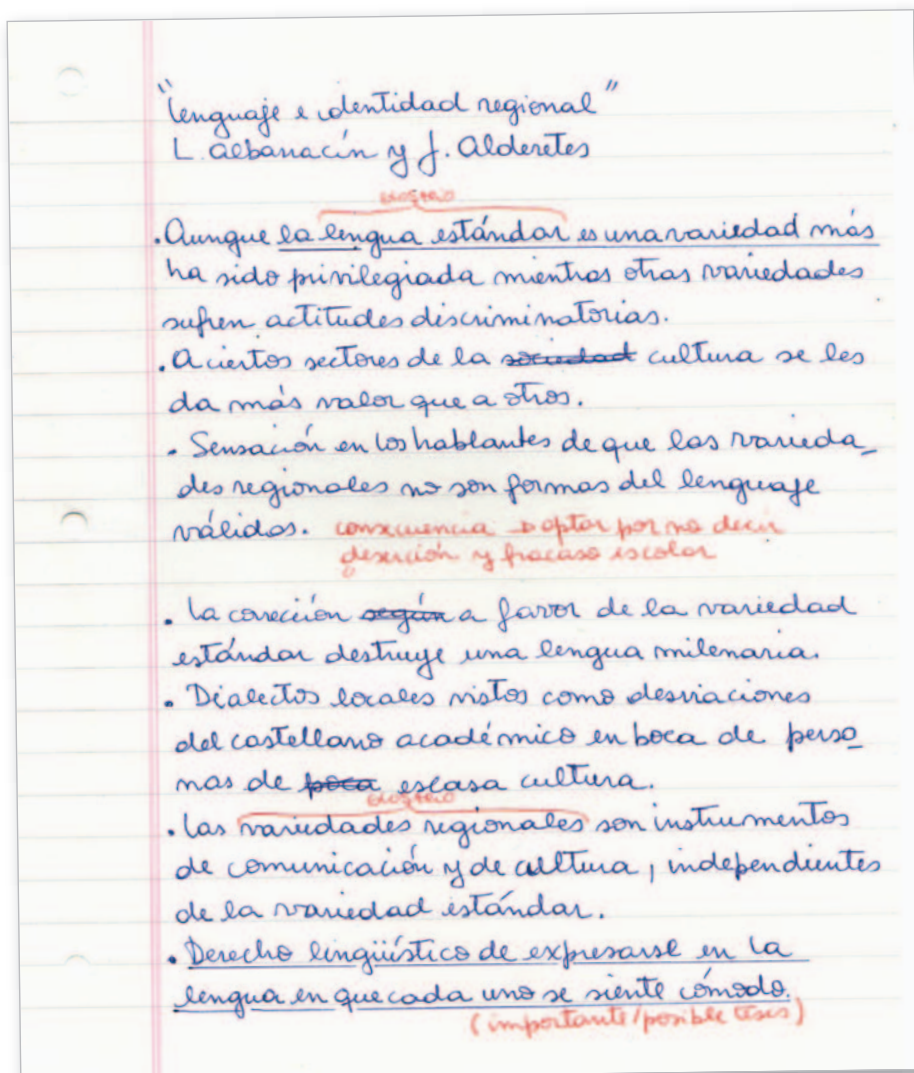 "Lenguaje e identidad regional"
L. Albarracín y J. Alderetes
glosario
. Aunque la lengua estándar es una variedad más
ha sido privilegiada mientras otras variedades
sufren actitudes discriminatorias.
. A ciertos sectores de la sociedad cultura se les
da más valor que a otros.
. Sensación en los hablantes de que las varieda_
des regionales no son formas del lenguaje
válidas. consecuencia → optar por no decir
deserción y fracaso escolar
. La corección según a favor de la variedad
estándar destruye una lengua milenaria.
. Dialectos locales vistos como desviaciones
del castellano académico en boca de perso_
nas de poca escasa cultura.
glosario
. Las variedades regionales son instrumentos
de comunicación y de cultura, independientes
de la variedad estándar.
. Derecho lingüístico de expresarse en la
lengua en que cada uno se siente cómodo.
(importante/posible tesis)